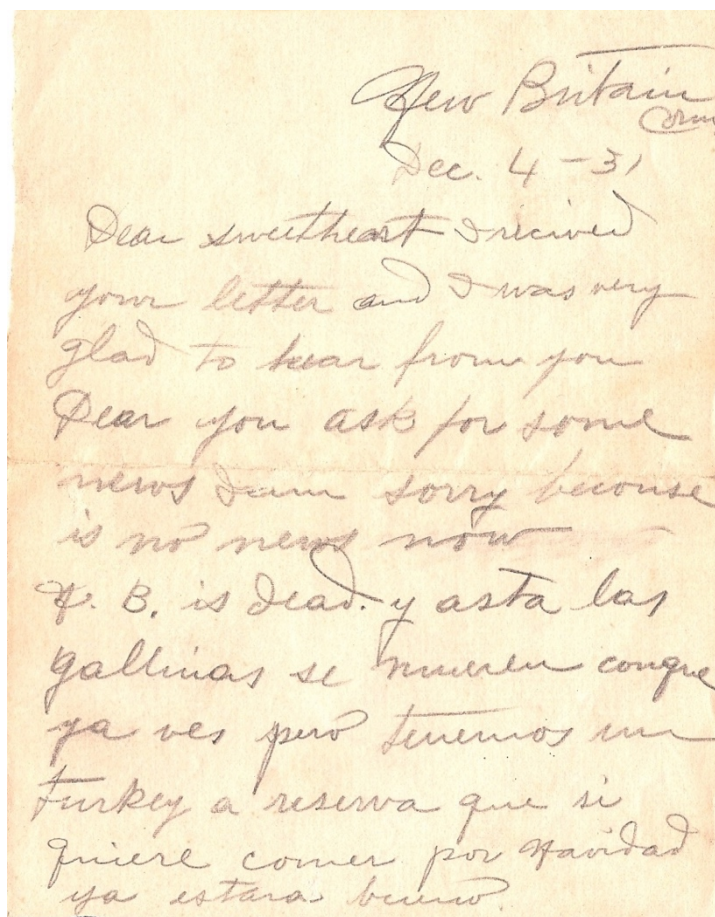 New Britain
Conn
Dec. 4 - 31
Dear sweetheart I recived
your letter and I was very
glad to hear from you
Dear you ask for some
news I am sorry becouse
is no news now
N. B. is dead. y asta las
gallinas se mueren conque
ya ves pero tenemos un
turkey a reserva que si
quiere comer por Navidad
ya estara bueno.